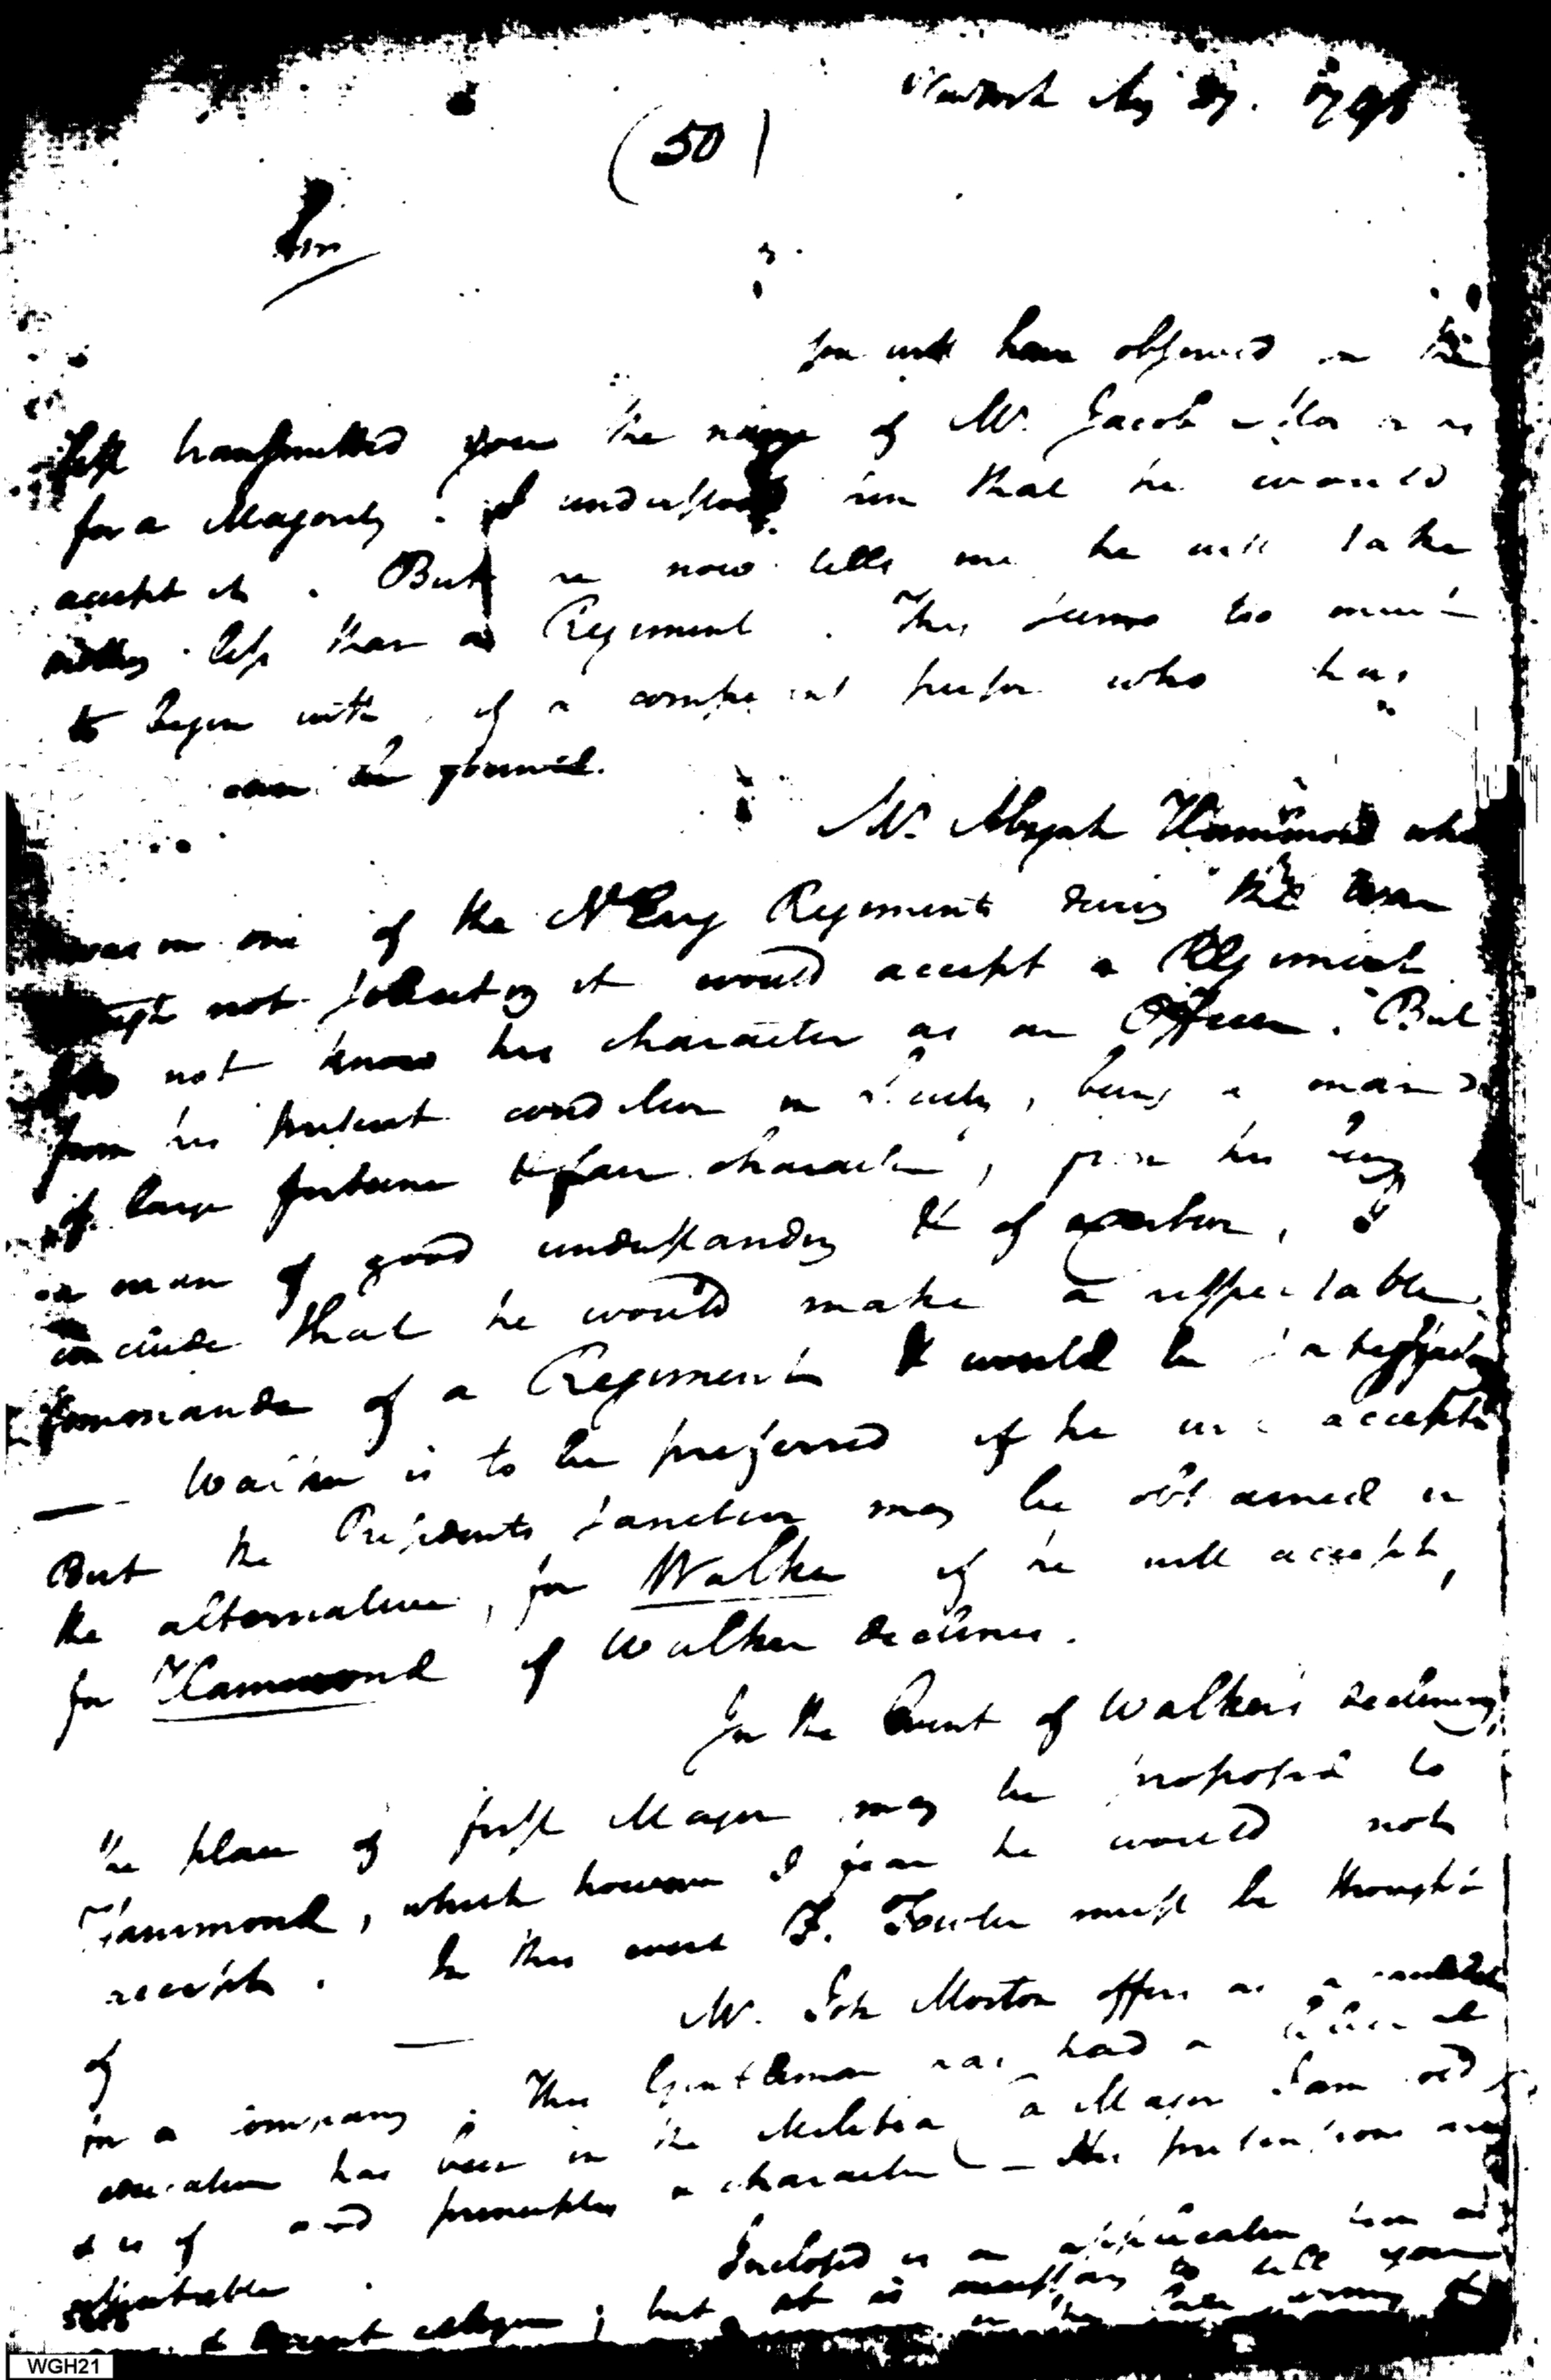 (50)
Sir
you will have observed in the
list transmitted you the name of Mr. Jacob
for a Majority. I understood him that he would
accept it. But he now tells me he will take
nothing less than a Regiment. This seems too much
to begin with, if a competent person who has
can be gained.
Mr. Abijah Hammond who
was in one of the N Eng Regiments during the War
not soliciting it would accept a Regiment
do not know his character as an Officer. But
from his present condition in Society, being a man
of large fortune & fair character, from his being
a man of good understanding & of exertion, I
conclude that he would make a respectable
Commander of a Regiment & would be
— Walker is to be preferred if he will accept
But the Presidents sanction may be obtained in
the alternative, for Walker if he will accept,
for Hammond if Walker declines.
In the Event of Walker's declining,
the place of first Major may be proposed to
Hammond, which however I fear he would not
accept. In this event T. Fowler must be thought
of —
Mr. Joh Morton offers as a candidate
for a company. This Gentleman has had a liberal
education has been in the Militia a Major I am told
& is of good principles & character — His pretensions are
Inclosed is an application from
; but it is necessary to tell you
in the late army
WGH21